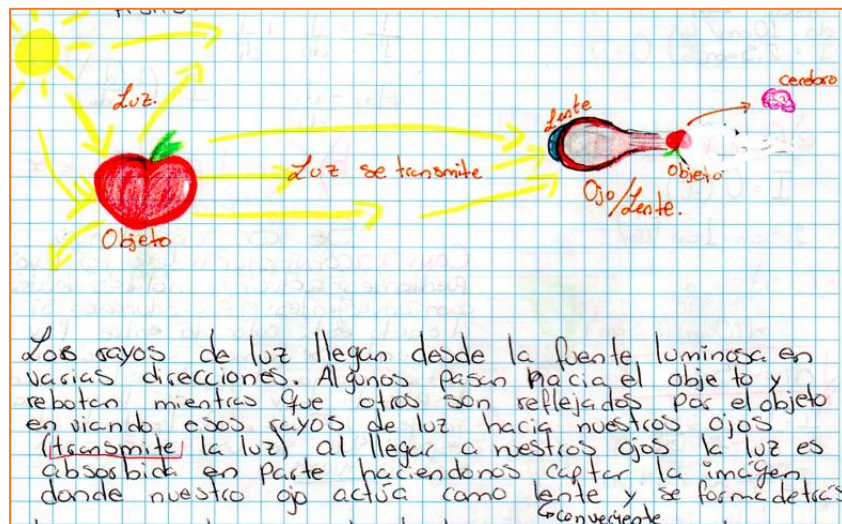 Luz.
cerebro
Lente
Luz se transmite
objeto
Ojo/Lente.
Objeto
Los rayos de luz llegan desde la fuente luminosa en
varias direcciones. Algunos pasan hacia el objeto y
rebotan mientras que otros son reflejados por el objeto
enviando esos rayos de luz hacia nuestros ojos
(transmite la luz) al llegar a nuestros ojos la luz es
absorbida en parte haciendonos captar la imágen
donde nuestro ojo actúa como lente y se forma detrás
convergente